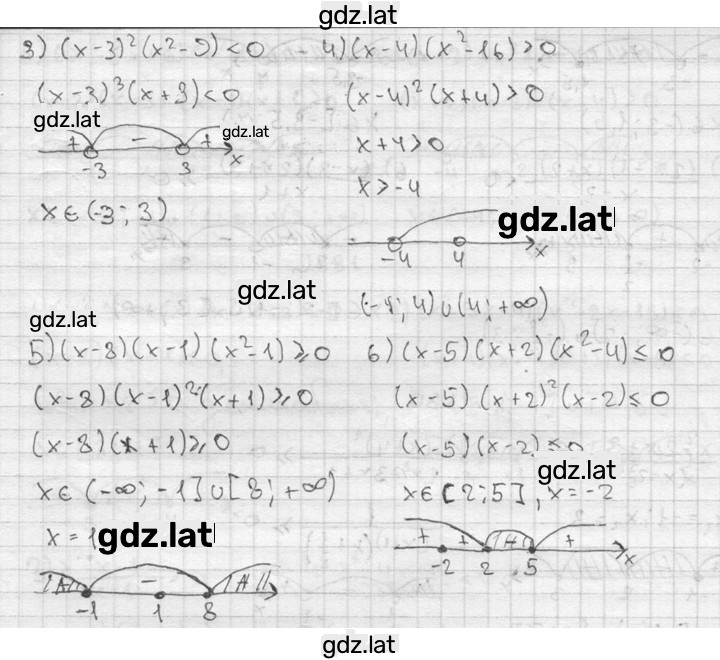 gdz.lat
3) (x-3)²(x²-9)<0
(x-3)³(x+3)<0
gdz.lat
gdz.lat
+ - + x
-3 3
x∈(-3; 3)
4)(x-4)(x²-16)>0
(x-4)²(x+4)>0
x+4>0
x>-4
gdz.lat
-4 4 x
(-4; 4)∪(4; +∞)
gdz.lat
gdz.lat
5)(x-8)(x-1)(x²-1)⩾0
(x-8)(x-1)²(x+1)⩾0
(x-8)(x+1)⩾0
x∈(-∞; -1]∪[8; +∞)
x=1
gdz.lat
-
-1 1 8
6)(x-5)(x+2)(x²-4)≤0
(x-5)(x+2)²(x-2)≤0
(x-5)(x-2)≤0
gdz.lat
x∈[2;5], x=-2
+ + +
-2 2 5 x
gdz.lat